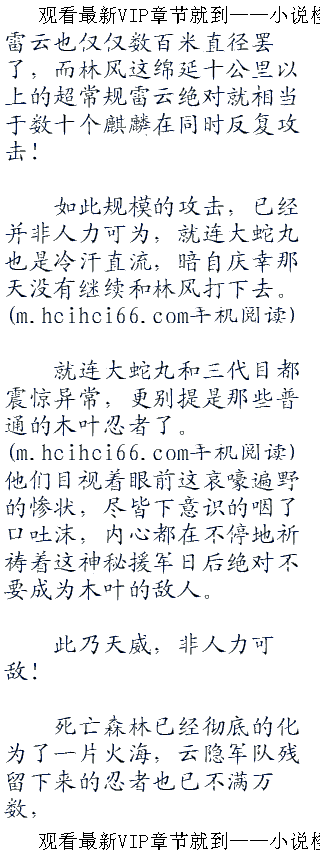 观看最新VIP章节就到——小说检
雷云也仅仅数百米直径罢
了，而林风这绵延十公里以
上的超常规雷云绝对就相当
于数十个麒麟在同时反复攻
击！
如此规模的攻击，已经
并非人力可为，就连大蛇丸
也是冷汗直流，暗自庆幸那
天没有继续和林风打下去。
(m.hcihci66.com手机阅读)
就连大蛇丸和三代目都
震惊异常，更别提是那些普
通的木叶忍者了。
(m.hcihci66.com手机阅读)
他们目视着眼前这哀嚎遍野
的惨状，尽皆下意识的咽了
口吐沫，内心都在不停地祈
祷着这神秘援军日后绝对不
要成为木叶的敌人。
此乃天威，非人力可
敌！
死亡森林已经彻底的化
为了一片火海，云隐军队残
留下来的忍者也已不满万
数，
观看最新VIP章节就到——小说检